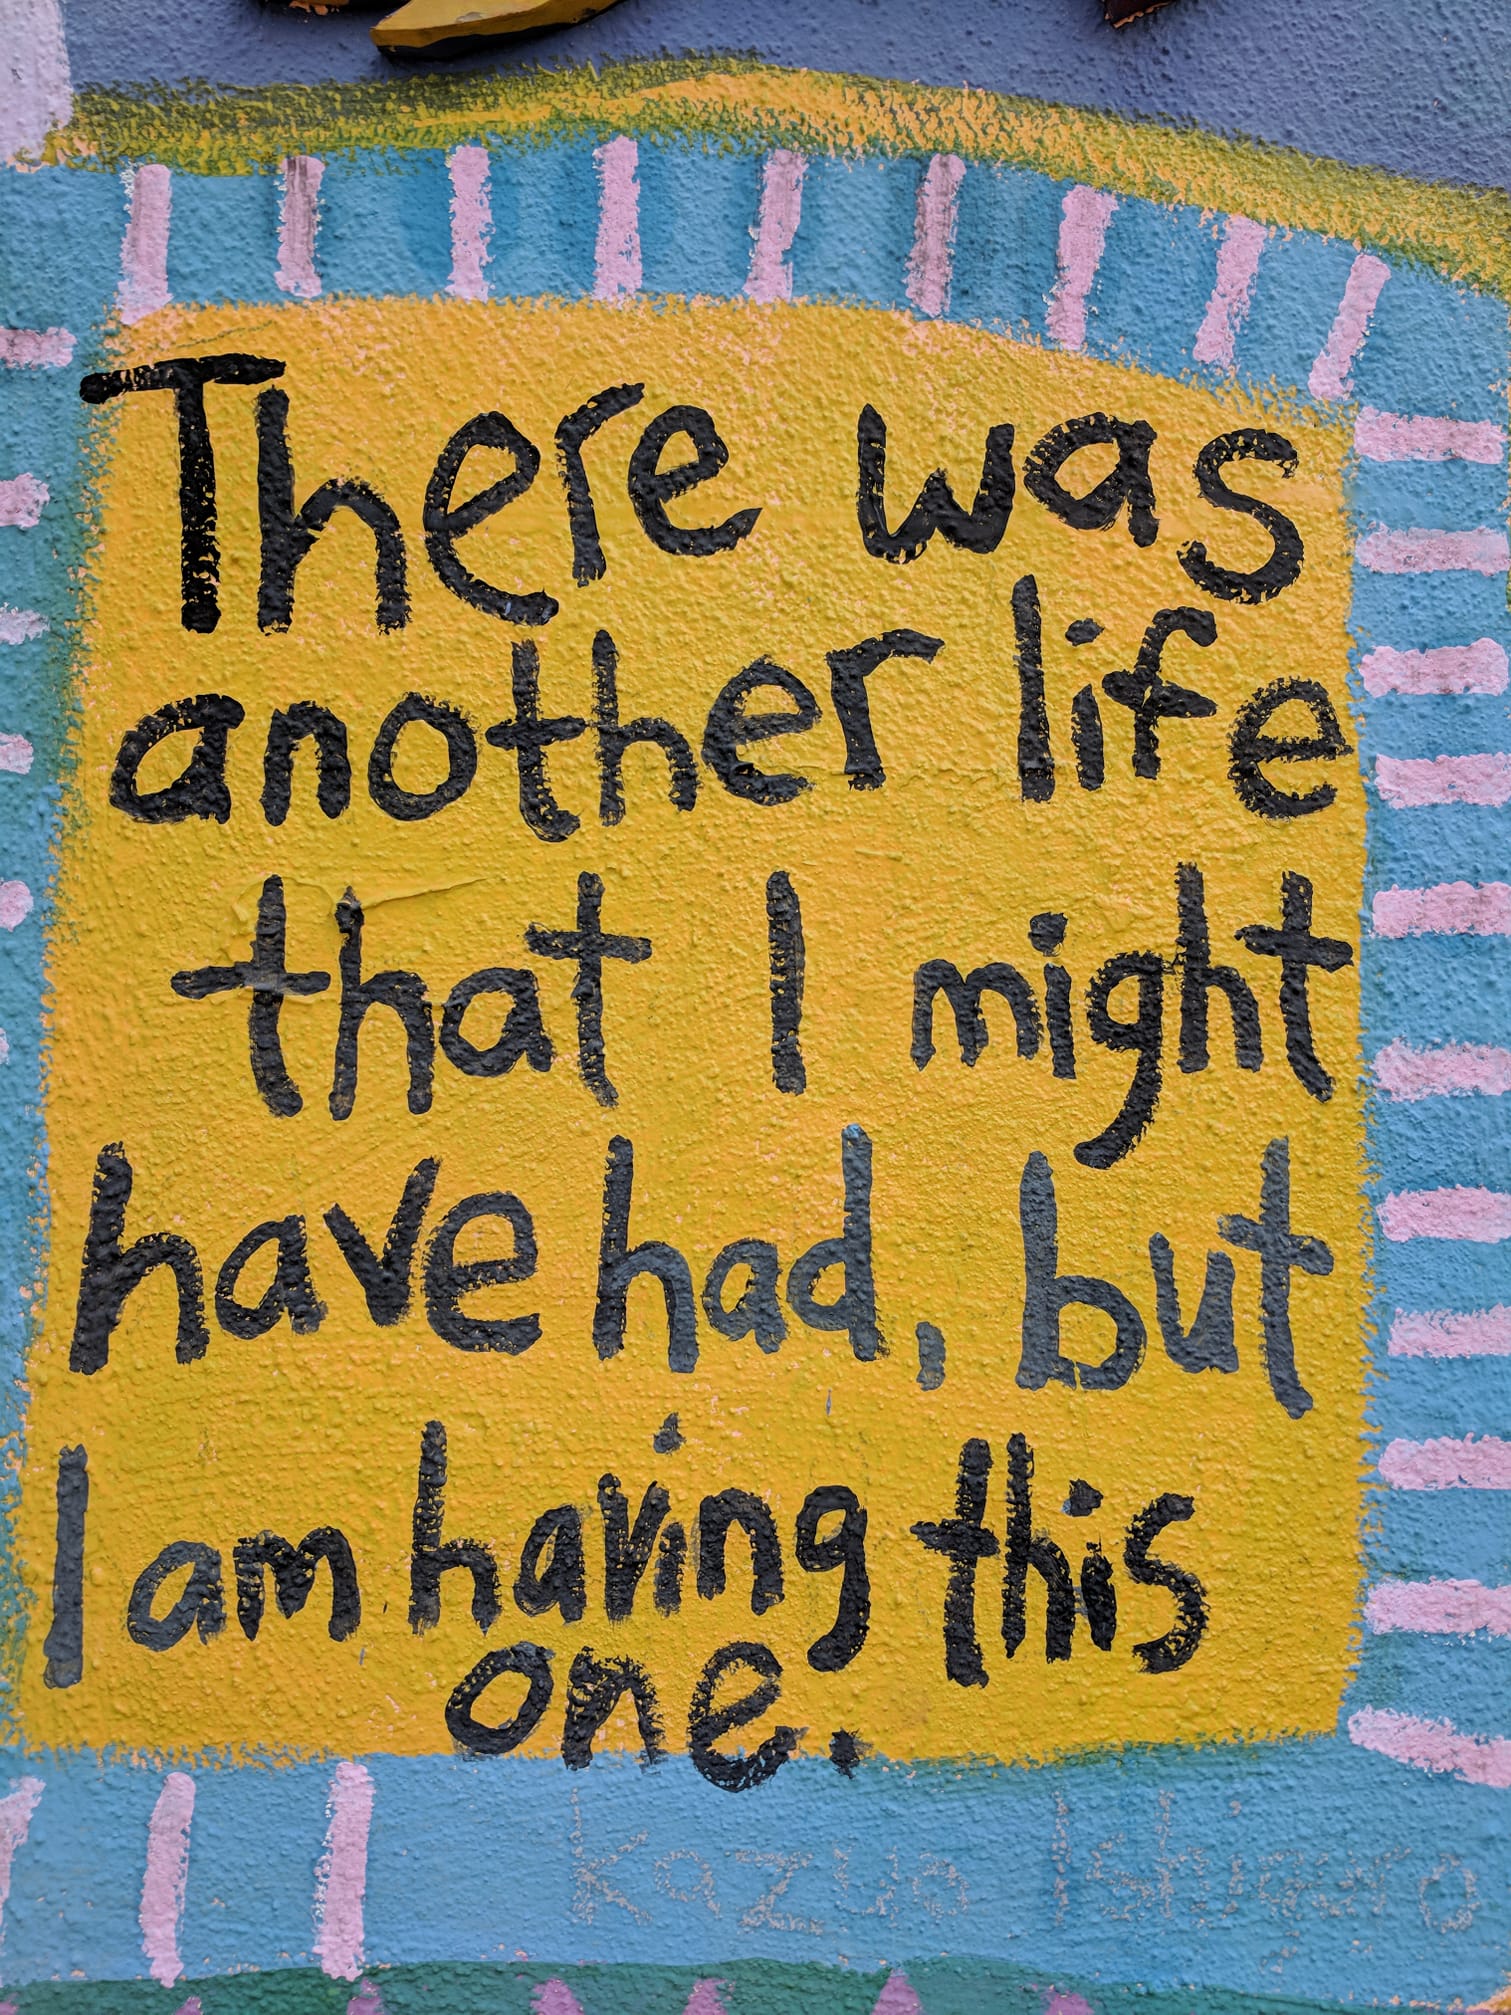 There was
another life
that I might
have had, but
I am having this
one.
Kazuo Ishiguro